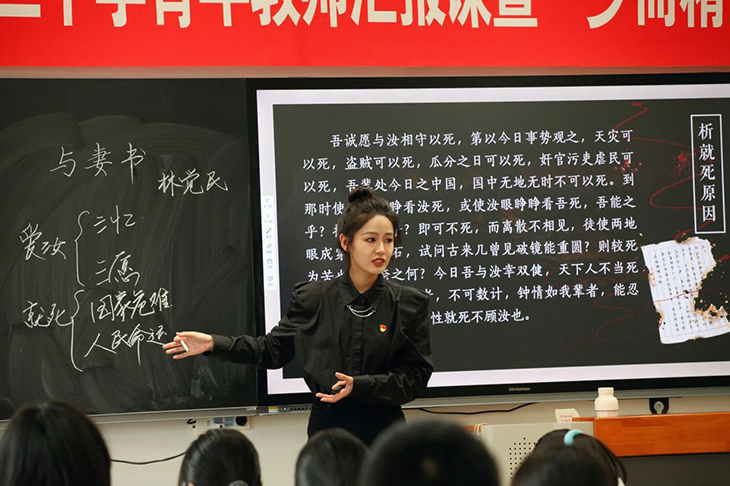 青年教师汇报课暨“少而精
与妻书
林觉民
爱汝
二忆
愿
就死
国家危难
人民命运
吾诚愿与汝相守以死，第以今日事势观之，天灾可
以死，盗贼可以死，瓜分之日可以死，奸官污吏虐民可
以死，吾辈处今日之中国，国中无地无时不可以死。到
那时使 睁看汝死，或使汝眼睁睁看吾死，吾能之
乎？ 即可不死，而离散不相见，徒使两地
眼成 石，试问古来几曾见破镜能重圆？则较死
为苦 之何？今日吾与汝幸双健，天下人不当死
，不可数计，钟情如我辈者，能忍
性就死不顾汝也。
析就死原因